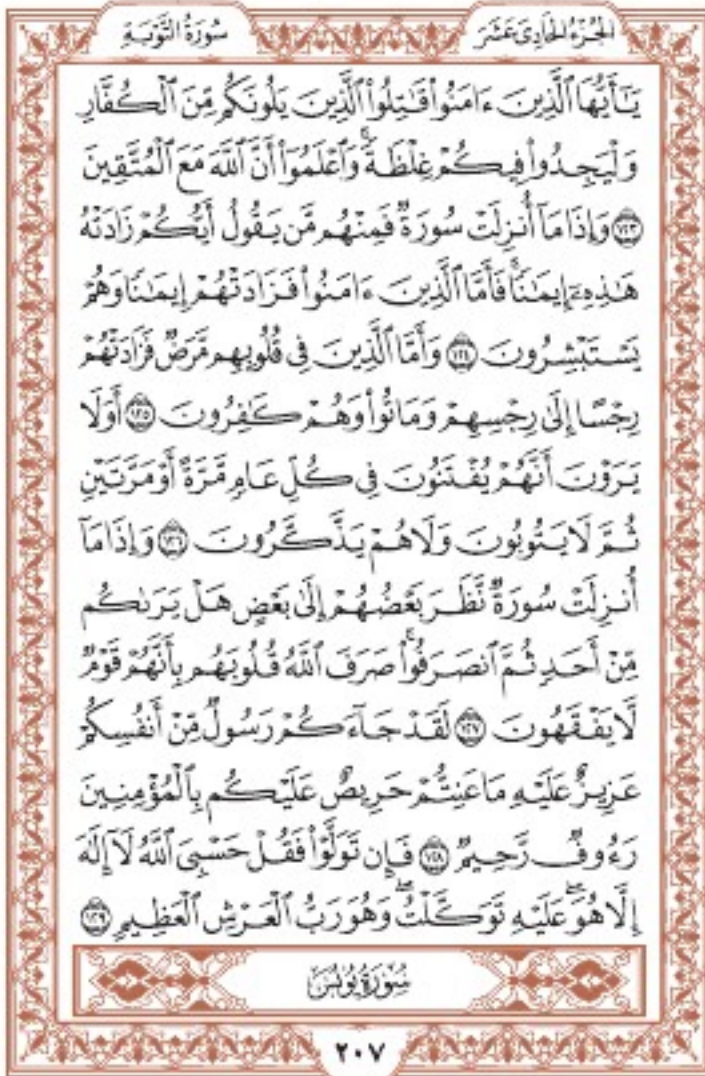 الجزء الحادي عشر سورة التوبة
يَٰٓأَيُّهَا ٱلَّذِينَ ءَامَنُوا۟ قَٰتِلُوا۟ ٱلَّذِينَ يَلُونَكُم مِّنَ ٱلْكُفَّارِ
وَلْيَجِدُوا۟ فِيكُمْ غِلْظَةً ۚ وَٱعْلَمُوٓا۟ أَنَّ ٱللَّهَ مَعَ ٱلْمُتَّقِينَ
١٢٣ وَإِذَا مَآ أُنزِلَتْ سُورَةٌ فَمِنْهُم مَّن يَقُولُ أَيُّكُمْ زَادَتْهُ
هَٰذِهِۦٓ إِيمَٰنًا ۚ فَأَمَّا ٱلَّذِينَ ءَامَنُوا۟ فَزَادَتْهُمْ إِيمَٰنًا وَهُمْ
يَسْتَبْشِرُونَ ١٢٤ وَأَمَّا ٱلَّذِينَ فِى قُلُوبِهِم مَّرَضٌ فَزَادَتْهُمْ
رِجْسًا إِلَىٰ رِجْسِهِمْ وَمَاتُوا۟ وَهُمْ كَٰفِرُونَ ١٢٥ أَوَلَا
يَرَوْنَ أَنَّهُمْ يُفْتَنُونَ فِى كُلِّ عَامٍ مَّرَّةً أَوْ مَرَّتَيْنِ
ثُمَّ لَا يَتُوبُونَ وَلَا هُمْ يَذَّكَّرُونَ ١٢٦ وَإِذَا مَآ
أُنزِلَتْ سُورَةٌ نَّظَرَ بَعْضُهُمْ إِلَىٰ بَعْضٍ هَلْ يَرَىٰكُم
مِّنْ أَحَدٍ ثُمَّ ٱنصَرَفُوا۟ ۚ صَرَفَ ٱللَّهُ قُلُوبَهُم بِأَنَّهُمْ قَوْمٌ
لَّا يَفْقَهُونَ ١٢٧ لَقَدْ جَآءَكُمْ رَسُولٌ مِّنْ أَنفُسِكُمْ
عَزِيزٌ عَلَيْهِ مَا عَنِتُّمْ حَرِيصٌ عَلَيْكُم بِٱلْمُؤْمِنِينَ
رَءُوفٌ رَّحِيمٌ ١٢٨ فَإِن تَوَلَّوْا۟ فَقُلْ حَسْبِىَ ٱللَّهُ لَآ إِلَٰهَ
إِلَّا هُوَ ۖ عَلَيْهِ تَوَكَّلْتُ ۖ وَهُوَ رَبُّ ٱلْعَرْشِ ٱلْعَظِيمِ ١٢٩
سُورَةُ يُونُسَ
٢٠٧